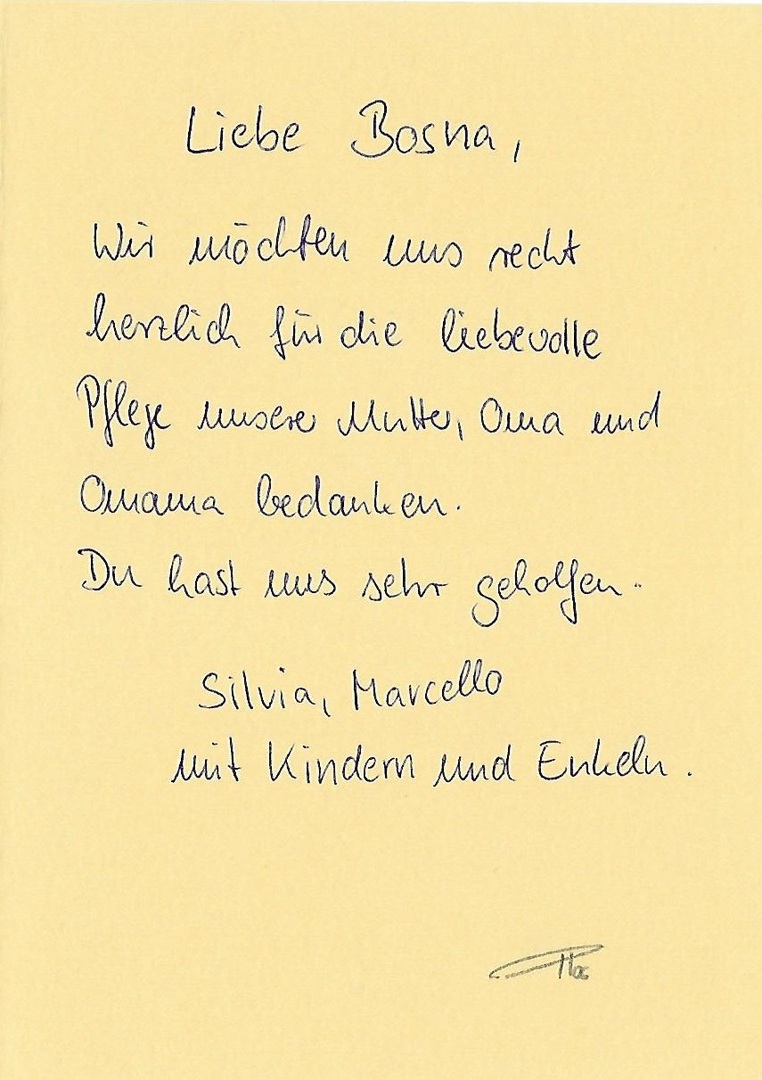 Liebe Bosna,
Wir möchten uns recht
herzlich für die liebevolle
Pflege unserer Mutter, Oma und
Omama bedanken.
Du hast uns sehr geholfen.
Silvia, Marcello
mit Kindern und Enkeln.